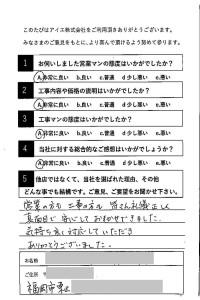 このたびはアイエ株式会社をご利用頂きありがとうございます。
みなさまのご意見をもとに、より喜んで頂けるよう努めて参ります。
1 お伺いしました営業マンの態度はいかがでしたか？
A.非常に良い b.良い c.普通 d少し悪い e.悪い
2 工事内容や価格の説明はいかがでしたか？
A.非常に良い b.良い c.普通 d少し悪い e.悪い
3 工事マンの態度はいかがでしたか？
A.非常に良い b.良い c.普通 d少し悪い e.悪い
4 当社に対する総合的なご感想はいかがでしょうか？
A.非常に良い b.良い c.普通 d少し悪い e.悪い
5 他店ではなくて、当社を選ばれた理由、その他
どんな事でも結構です。ご意見、ご要望をお聞かせ下さい。
営業の方も 工事の方も 皆さん礼儀正しく
真面目で 安心して おまかせできました。
気持ち良く対応していただき
ありがとうございました。
お名前
ご住所 〒
福岡市東区